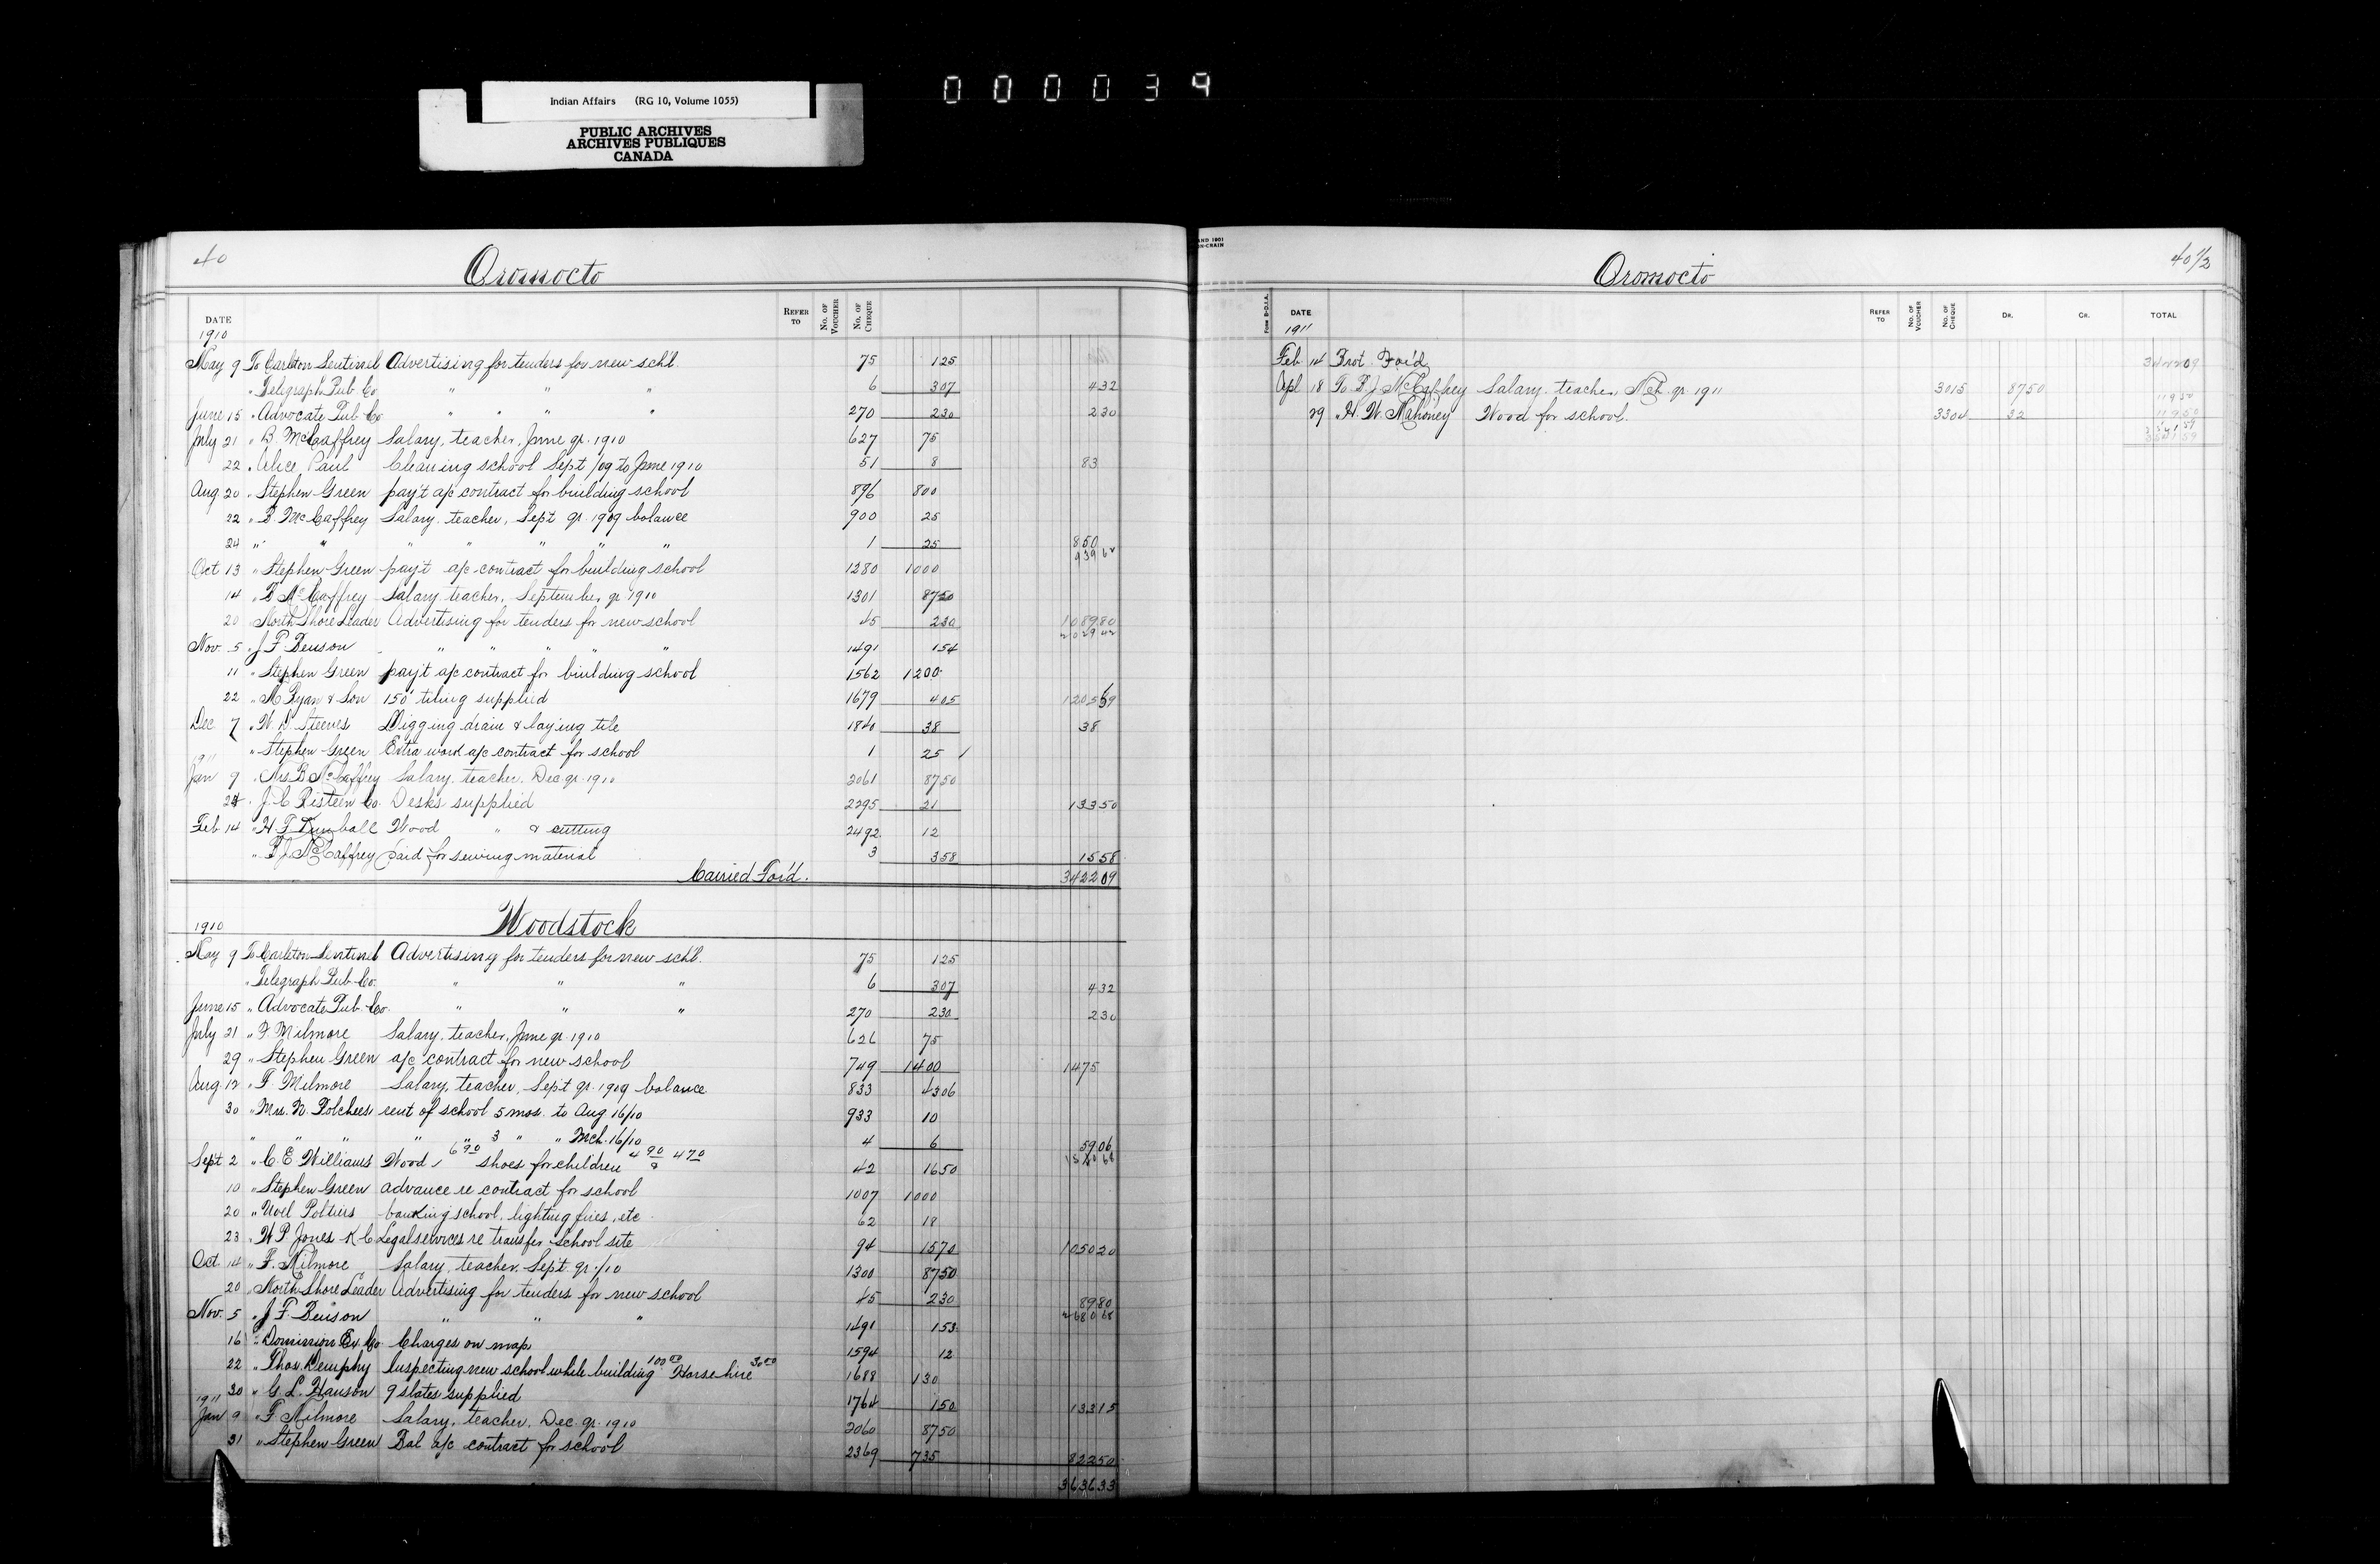 Indian Affairs (RG 10, Volume 1055)
PUBLIC ARCHIVES
ARCHIVES PUBLIQUES
CANADA
000039
40
Oromocto
DATE REFER TO No. OF VOUCHER No. OF CHEQUE
1910
May 9 To Carleton Sentinel Advertising for tenders for new sch'l. 75 1 25
" Telegraph Pub. Co. " " " 6 3 07 4 32
June 15 " Advocate Pub. Co. " " " " 270 2 30 2 30
July 21 " B. McCaffrey Salary, teacher, June qr. 1910 627 75
22 " Alice Paul Cleaning school Sept /09 to June 1910 51 8 83
Aug 20 " Stephen Green pay't a/c contract for building school 896 800
22 " B. McCaffrey Salary, teacher, Sept qr. 1909 balance 900 25
24 " " " " " " " 1 25 850
939 62
Oct 13 " Stephen Green pay't a/c contract for building school 1280 1000
14 " B McCaffrey Salary, teacher, September qr 1910 1301 87 50
20 North Shore Leader Advertising for tenders for new school 45 2 30 1089 80
2029 42
Nov. 5 " J F Benson " " " " " 1491 1 54
11 " Stephen Green pay't a/c contract for building school 1562 1200
22 " M Ryan & Son 150' tiling supplied 1679 4 05 1205 59
Dec 7 " W. D. Steeves Digging drain & laying tile 1840 38 38
" Stephen Green Extra work a/c contract for school 1 25 1
1911
Jan 9 " Mrs. B McCaffrey Salary, teacher, Dec. qr. 1910 2061 87 50
24 " J. C Risteen Co. Desks supplied 2295 21 133 50
Feb 14 " H. F. Kimball Wood " & cutting 2492 12
" B J McCaffrey Paid for sewing material 3 3 58 15 58
Carried For'd. 3422 09
Woodstock
1910
May 9 To Carleton Sentinel Advertising for tenders for new sch'l. 75 1 25
" Telegraph Pub. Co. " " " 6 3 07 4 32
June 15 " Advocate Pub. Co. " " " 270 2 30 2 30
July 21 " F. Milmore Salary, teacher, June qr. 1910 626 75
29 " Stephen Green a/c contract for new school 749 1400 1475
Aug. 12 " F. Milmore Salary, teacher, Sept qr. 1909 balance 833 43 06
30 " Mrs. N. Polchees rent of school 5 mos. to Aug 16/10 933 10
" " " " " 3 " " Mch. 16/10 4 6 59 06
Sept 2 " C. E. Williams Wood, 6 90 shoes for children 4 90 & 4 70 42 16 50 1540 68
10 " Stephen Green advance re contract for school 1007 1000
20 " Noel Poltiers banking school, lighting fires, etc. 62 18
23 " W P. Jones K C Legal services re transfer school site 94 15 70 1050 20
Oct. 14 " F. Milmore Salary, teacher, Sept qr. /10 1300 87 50
20 North Shore Leader Advertising for tenders for new school 45 2 30 89 80
2680 68
Nov. 5 " J F. Benson " " " 1491 1 53
16 " Dominion Ex. Co. Charges on map 1594 12
22 " Thos. Demphy Inspecting new school while building 100 00 Horse hire 30 00 1688 130
30 " G. L. Hanson 9 slates supplied 1764 1 50 133 15
1911
Jan 9 " F. Milmore Salary, teacher, Dec. qr. 1910 2060 87 50
31 " Stephen Green Bal a/c contract for school 2369 735 822 50
3636 33
40 1/2
Oromocto
Form B-D.I.A. DATE REFER TO No. OF VOUCHER No. OF CHEQUE DR. CR. TOTAL
1911
Feb. 14 Brot For'd 3422 09
Apl 18 To B. J. McCaffrey Salary, teacher, Mch. qr. 1911 3015 87 50 119 50
29 " H. W. Mahoney Wood for school. 3304 32 119 50
3541 59